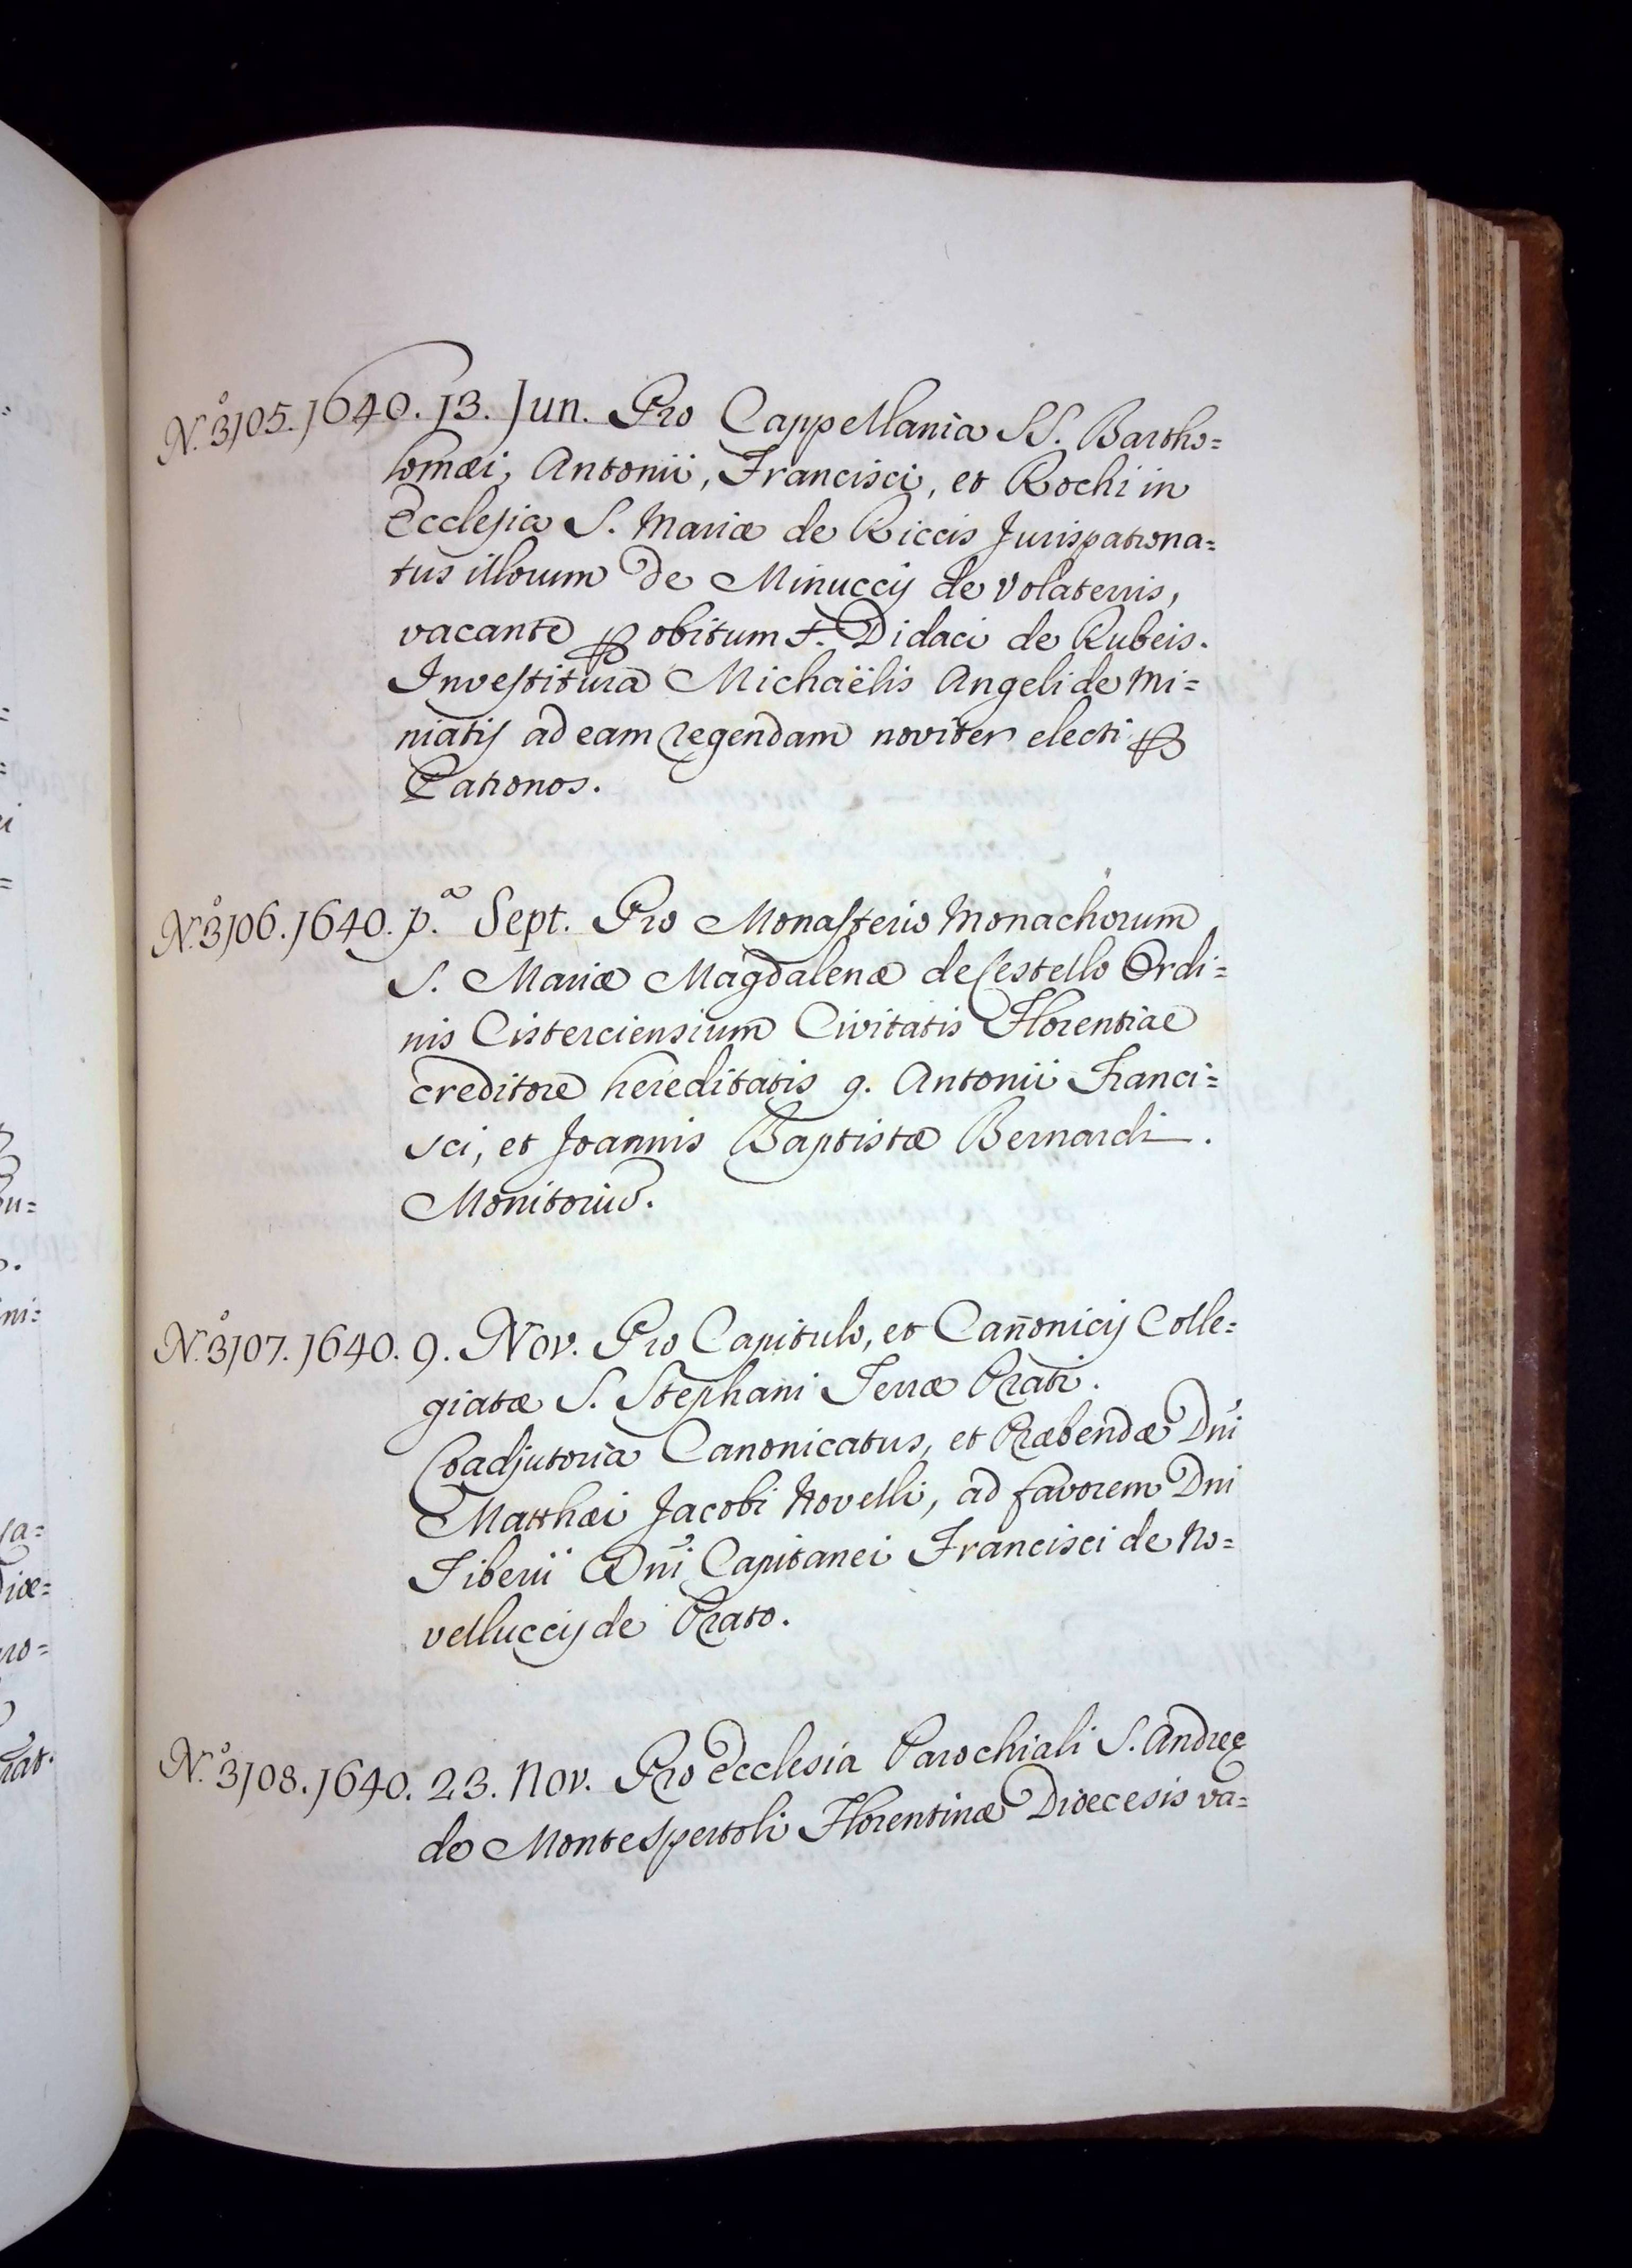 N.º 3105. 1640. 13. Jun. Pro Cappellania SS. Bartho=
lomæi, Antonii, Francisci, et Rochi in
Ecclesia S. Mariæ de Riccis Jurispatrona=
tus illorum de Minuccij de Volaterris,
vacante ꝑ obitum F. Didaci de Rubeis.
Investitura Michaëlis Angeli de Mi=
niatij ad eam regendam noviter electi ꝑ
Patronos.
N.º 3106. 1640. p.ª Sept. Pro Monasterio Monachorum
S. Mariæ Magdalenæ de Cestello Ordi=
nis Cisterciensium Civitatis Florentiae
creditore hereditatis q. Antonii Franci=
sci, et Joannis Baptistæ Bernardi.
Monitoriũ.
N.º 3107. 1640. 9. Nov. Pro Capitulo, et Cañonicij Colle=
giatæ S. Stephani Terræ Prati.
Coadjutoria Canonicatus, et Præbendæ Dñi
Matthæi Jacobi Novelli, ad favorem Dni
Tiberii Dñi Capitanei Francisci de No=
velluccij de Prato.
N.º 3108. 1640. 23. Nov. Pro Ecclesia Parochiali S. Andreę
de Montespertoli Florentinæ Dioecesis va=